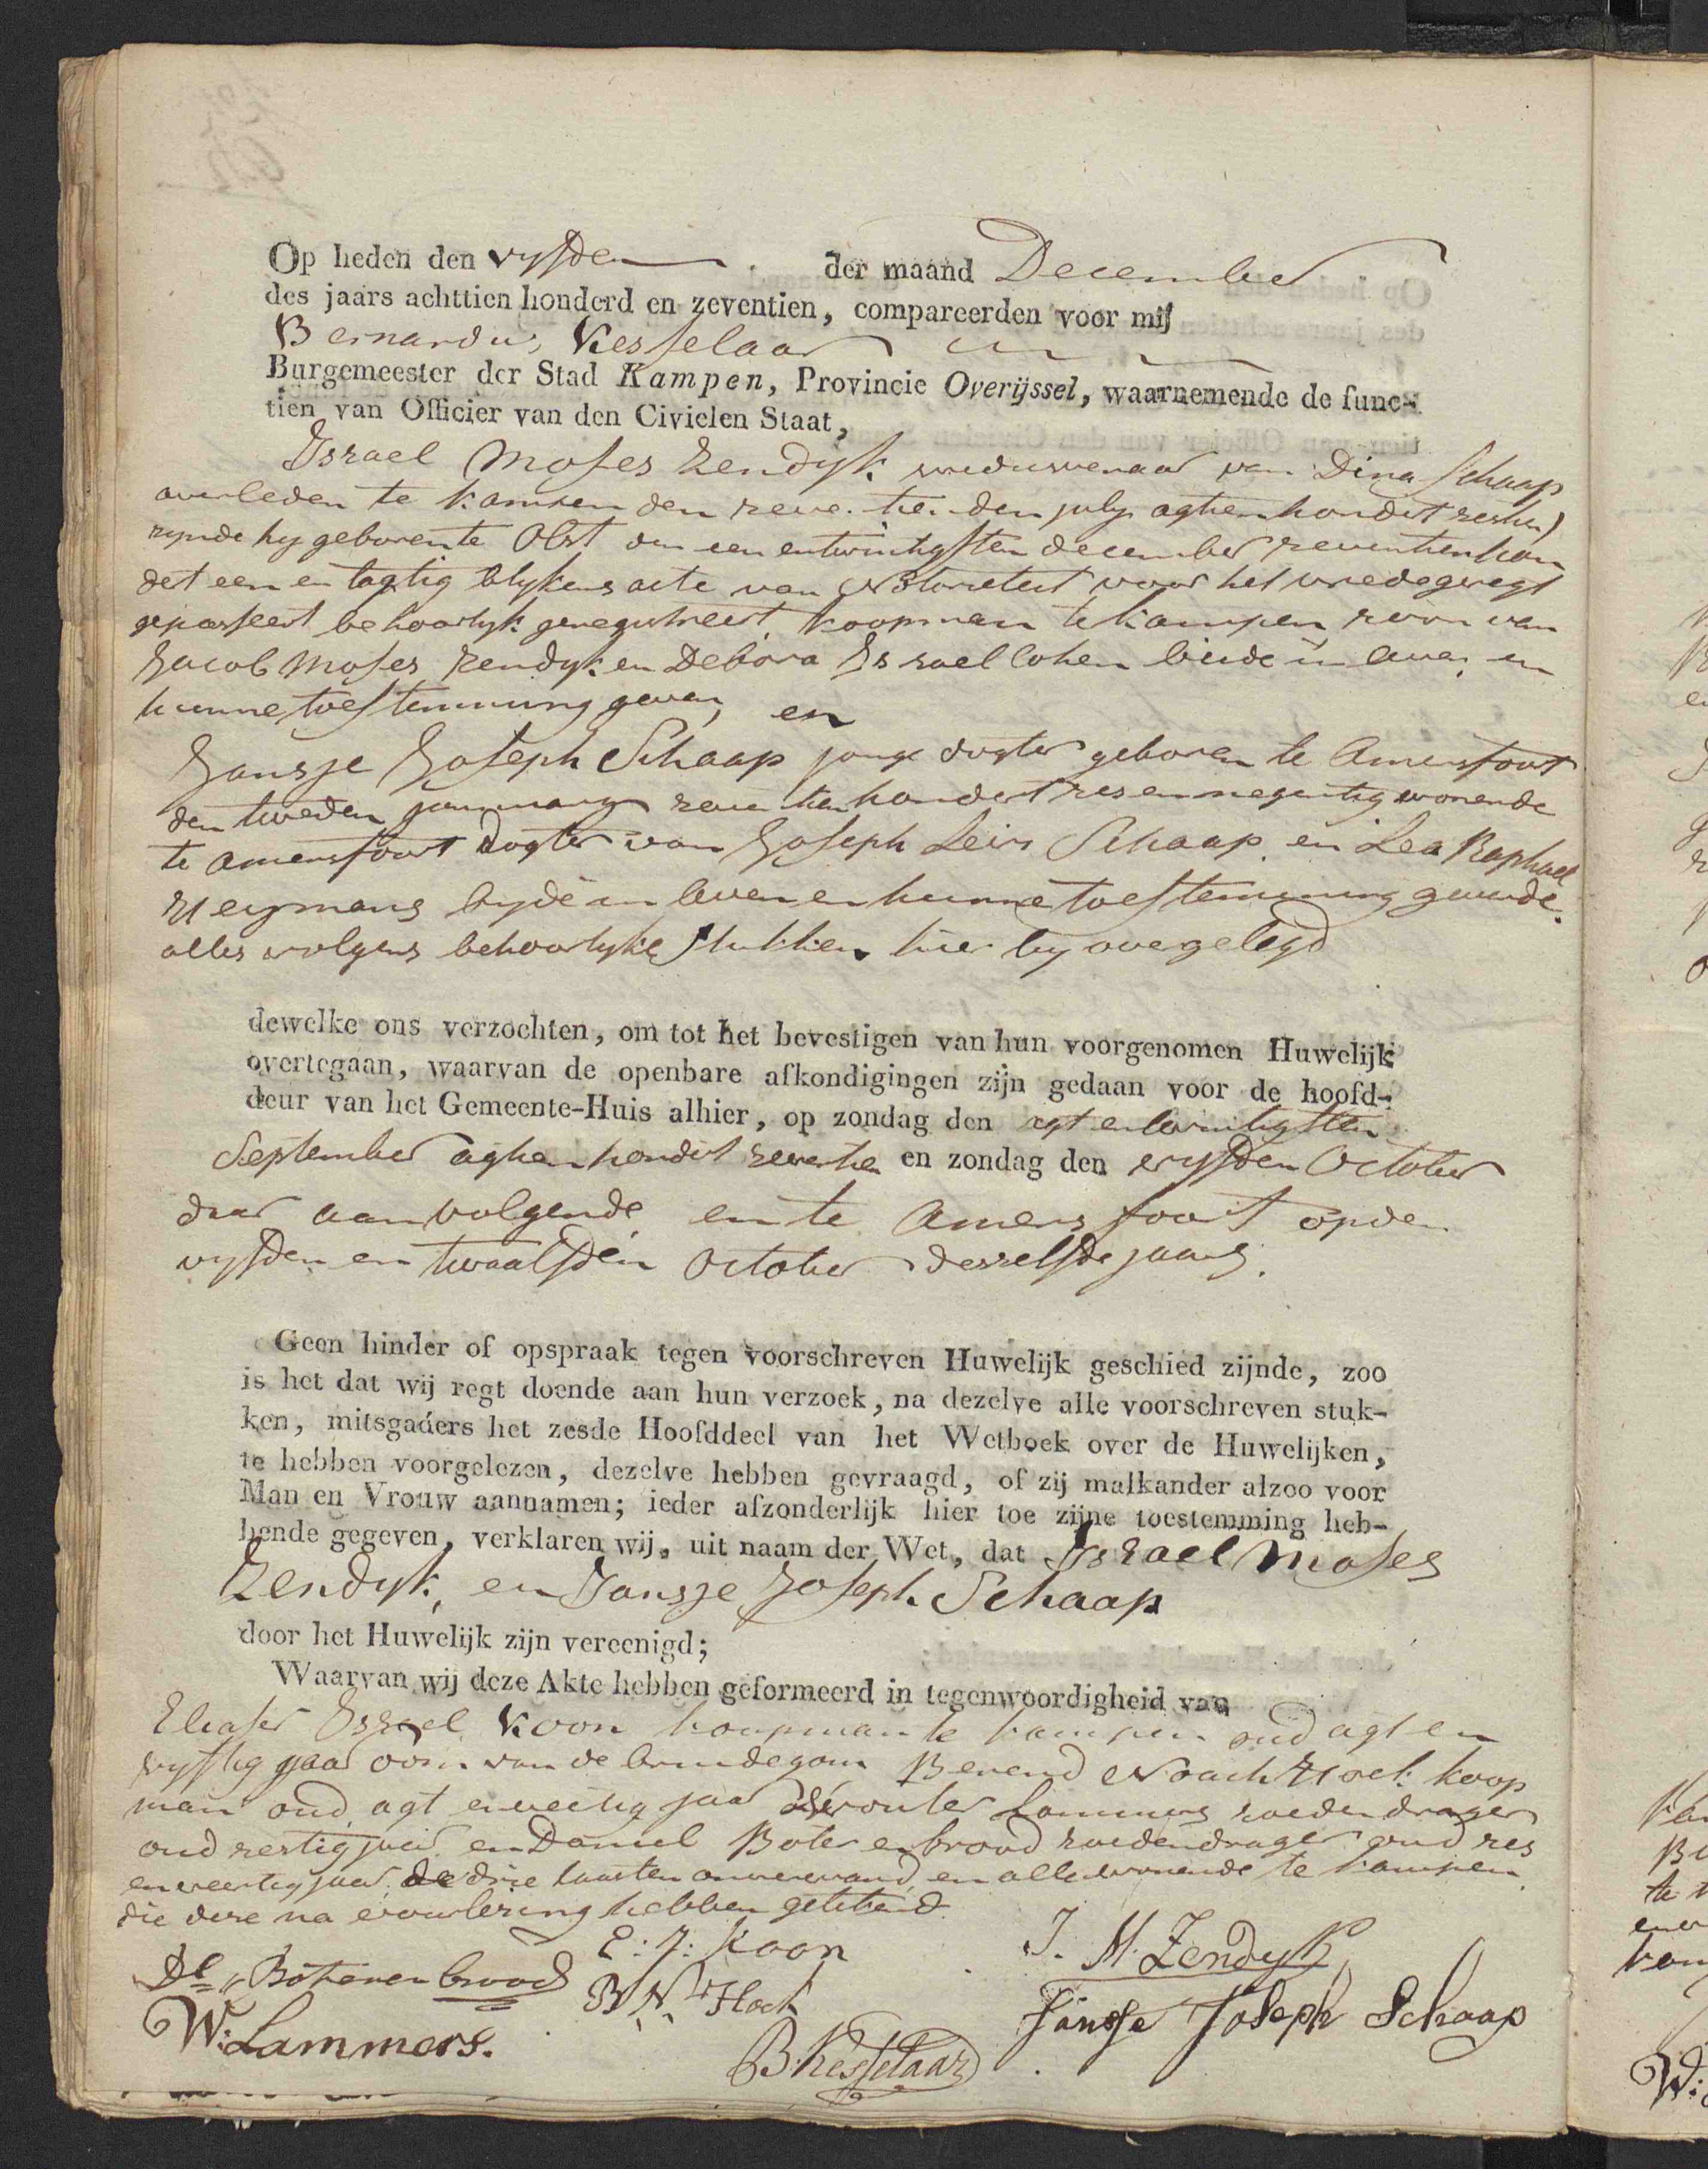 Op heden den vyfden der maand December
des jaars achttien honderd en zeventien, compareerden voor mij
Bernardus Kesselaar
Burgemeester der Stad Kampen, Provincie Overijssel, waarnemende de func-
tien van Officier van den Civielen Staat,
Israel Moses Zendyk weduwenaar van Dina Schaap
overleden te Kampen den zeventienden july agtienhondert zestien
zynde hy geboren te Olst den een en twintigsten december zeventienhon
dert een en tagtig blykens acte van Notoriteit voor het vredegeregt
gepasseert behoorlyk geregistreert, koopman te Kampen zoon van
Jacob Moses Zendyk en Debora Israel Cohen beide in leven en
hunne toestemming geven, en
Jansje Joseph Schaap jonge dogter geboren te Amersfoort
den tweden januwary zeventienhondert zes en negentig wonende
te Amersfoort dogter van Joseph Levi Schaap en Lea Raphael
Heymans byde in leven en hunne toestemming gevende.
alles volgens behoorlyke stukken hier by overgelegd
dewelke ons verzochten, om tot het bevestigen van hun voorgenomen Huwelijk
overtegaan, waarvan de openbare afkondigingen zijn gedaan voor de hoofd-
deur van het Gemeente-Huis alhier, op zondag den agt en twintigsten
September agtienhondert zeventien en zondag den vyfden October
daar aanvolgende en te Amersfoort op den
vyfden en twaalfden October deszelfde jaars.
Geen hinder of opspraak tegen voorschreven Huwelijk geschied zijnde, zoo
is het dat wij regt doende aan hun verzoek, na dezelve alle voorschreven stuk-
ken, mitsgaders het zesde Hoofddeel van het Wetboek over de Huwelijken,
te hebben voorgelezen, dezelve hebben gevraagd, of zij malkander alzoo voor
Man en Vrouw aannamen; ieder afzonderlijk hier toe zijne toestemming heb-
bende gegeven, verklaren wij, uit naam der Wet, dat Israel Moses
Zendyk, en Jansje Joseph Schaap
door het Huwelijk zijn vereenigd;
Waarvan wij deze Akte hebben geformeerd in tegenwoordigheid van
Eliaser Israel Koon koopman te Kampen oud agt en
vyftig jaar oom van de bruidegom Berend Noach Hoek koop
man oud agt en veertig jaar Wouter Lammers roedendrager
oud zestig jaar en Daniel Boterenbrood roedendrager oud zes
en veertig jaar de drie laasten onverwand en alle wonende te Kampen
die deze na voorlezing hebben getekend
Dl. Boterenbrood E: J: Koon J. M. Zendyk
W: Lammers. B N Hoek Jansje Joseph Schaap
B. Kesselaar